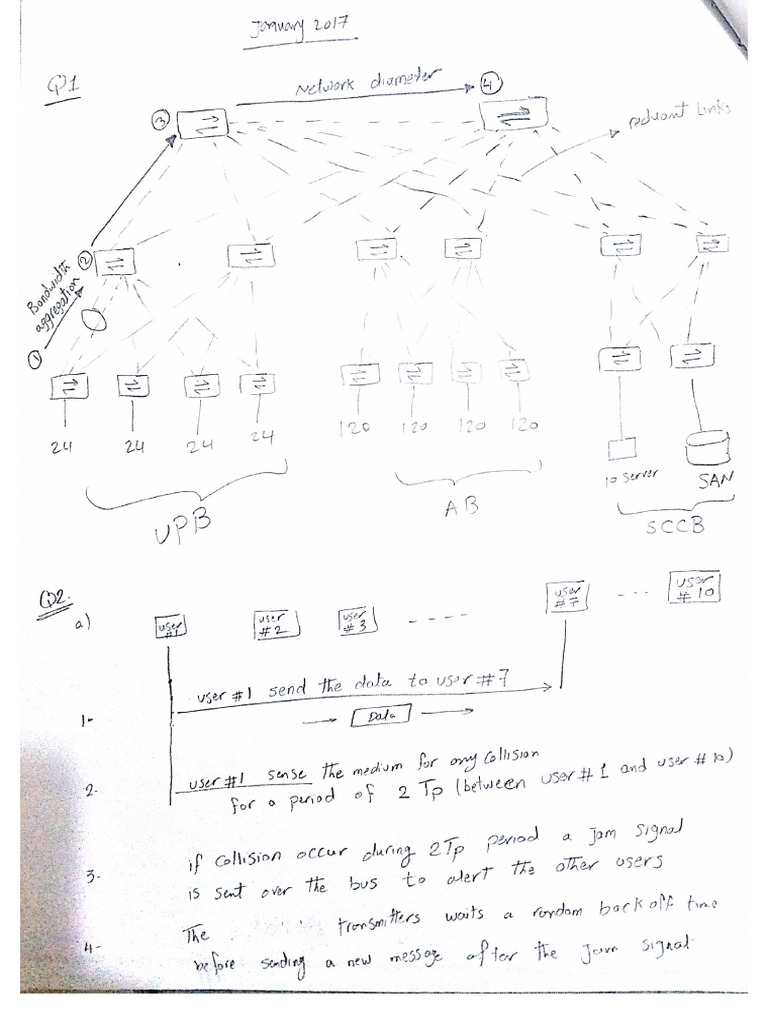 January 2017
Q1
Network diameter
④
③
reduant Links
②
Bandwidth
aggregation
①
24 24 24 24
120 120 120 120
10 server
SAN
UPB
AB
SCCB
Q2.
a)
user #1
user #2
user #3
----
user #7
...
user #10
user #1 send the data to user #7
1-
Data
2-
user #1 sense the medium for any collision
for a period of 2 Tp (between user #1 and user #10)
3-
if collision occur during 2Tp period a jam signal
is sent over the bus to alert the other users
4-
The transmitters waits a random back off time
before sending a new message after the jam signal.